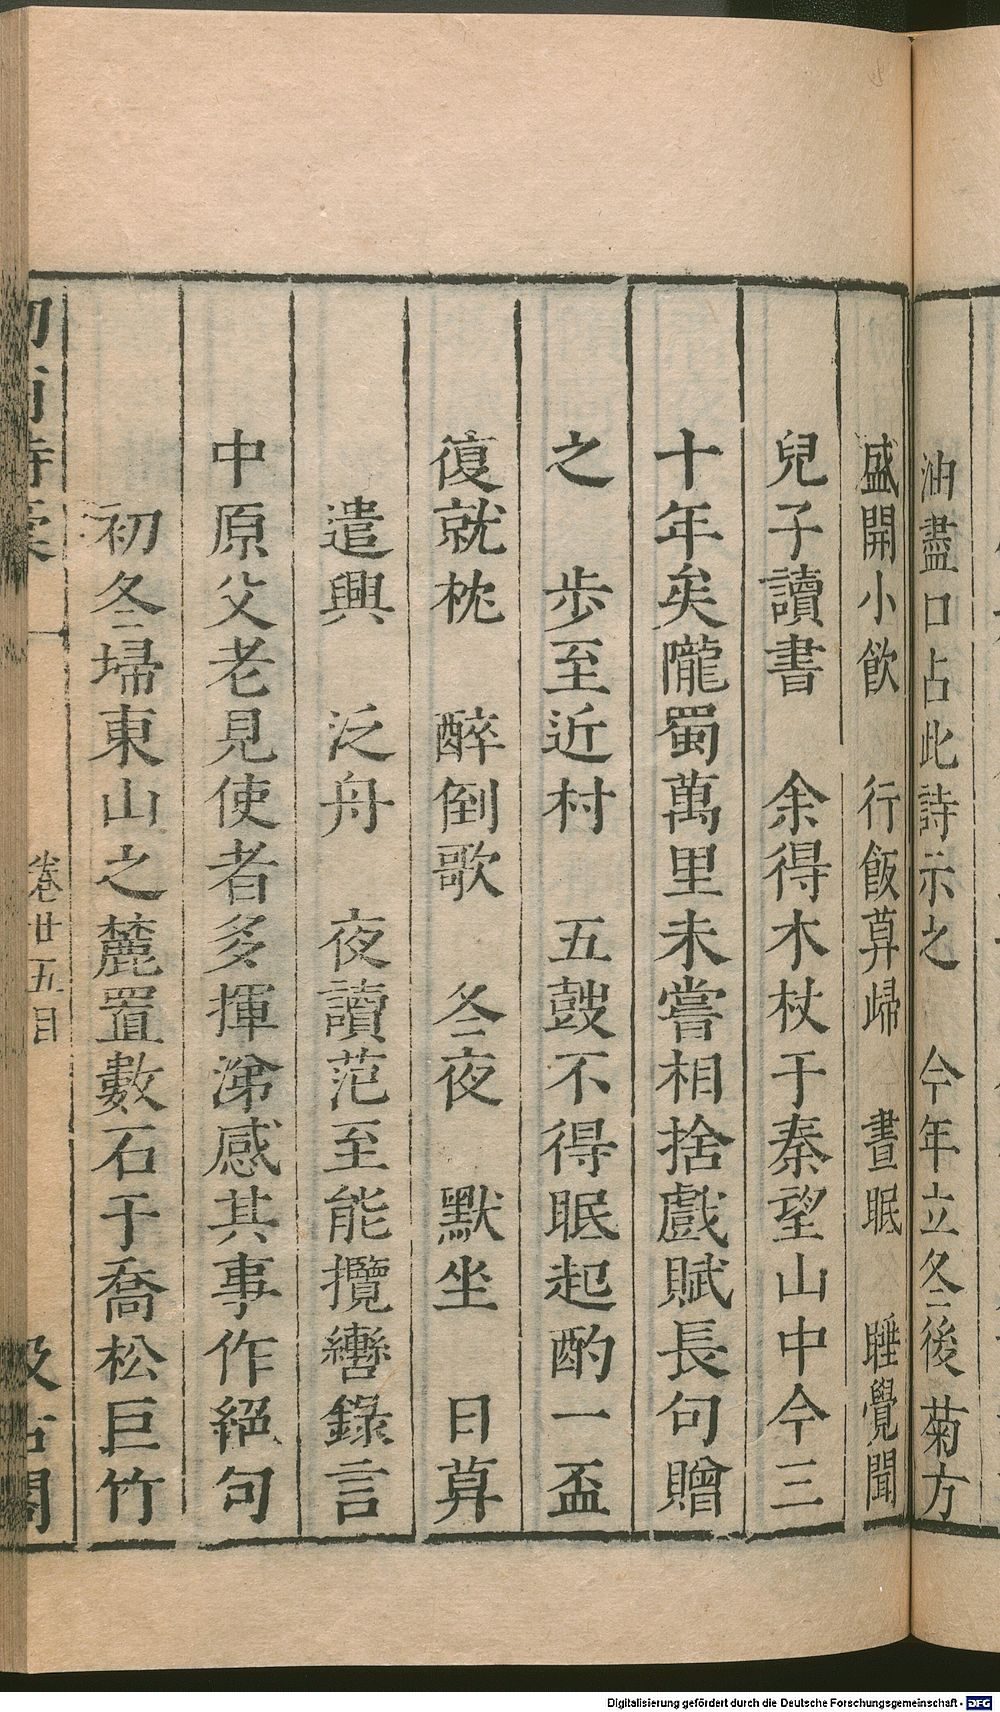 油盡口占此詩示之　今年立冬後菊方
盛開小飲　行飯暮歸　晝眠　睡覺聞
兒子讀書　余得木杖于秦望山中今三
十年矣隴蜀萬里未嘗相捨戲賦長句贈
之　步至近村　五鼓不得眠起酌一盃
復就枕　醉倒歌　冬夜　默坐　日暮
遣興　泛舟　夜讀范至能攬轡錄言
中原父老見使者多揮涕感其事作絕句
初冬埽東山之麓置數石于喬松巨竹
卷廿五目
Digitalisierung gefördert durch die Deutsche Forschungsgemeinschaft - DFG